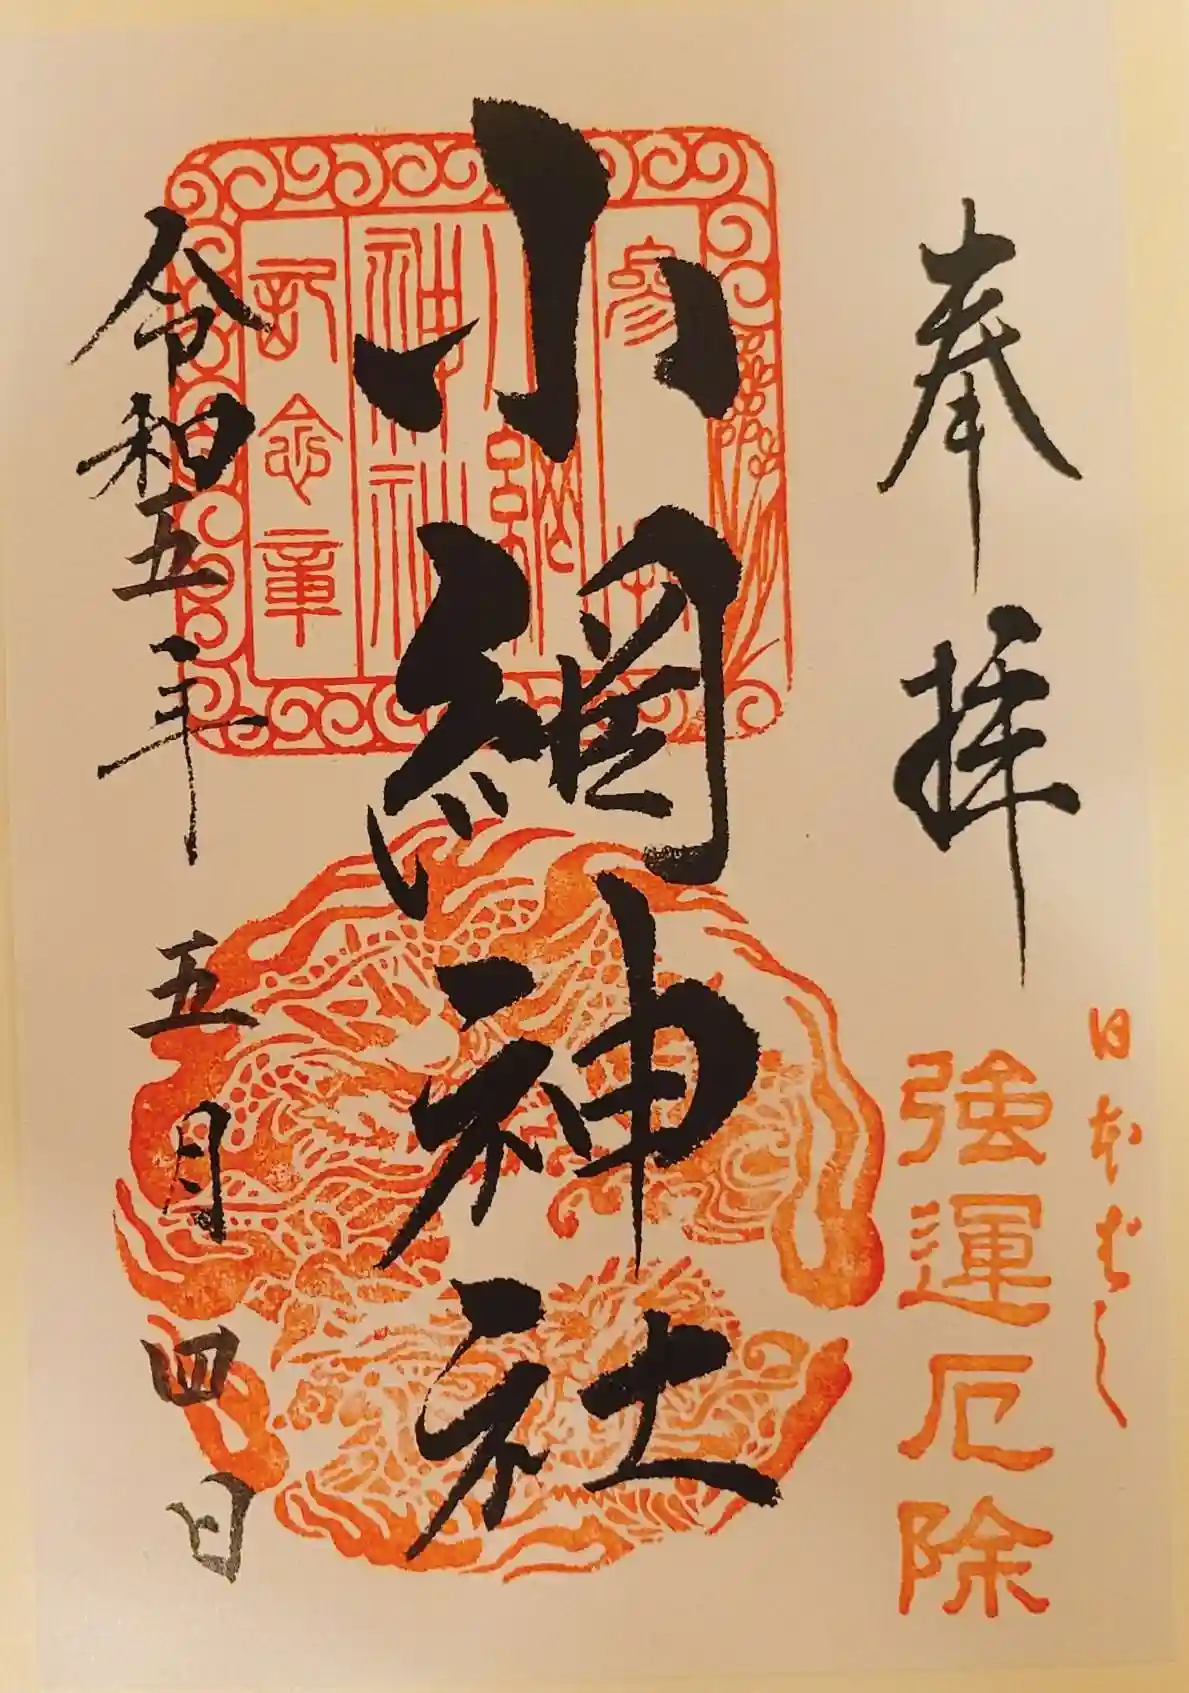 奉拝
日本ばし
強運厄除
参拝
小網
神社
記念章
小網神社
令和五年五月四日